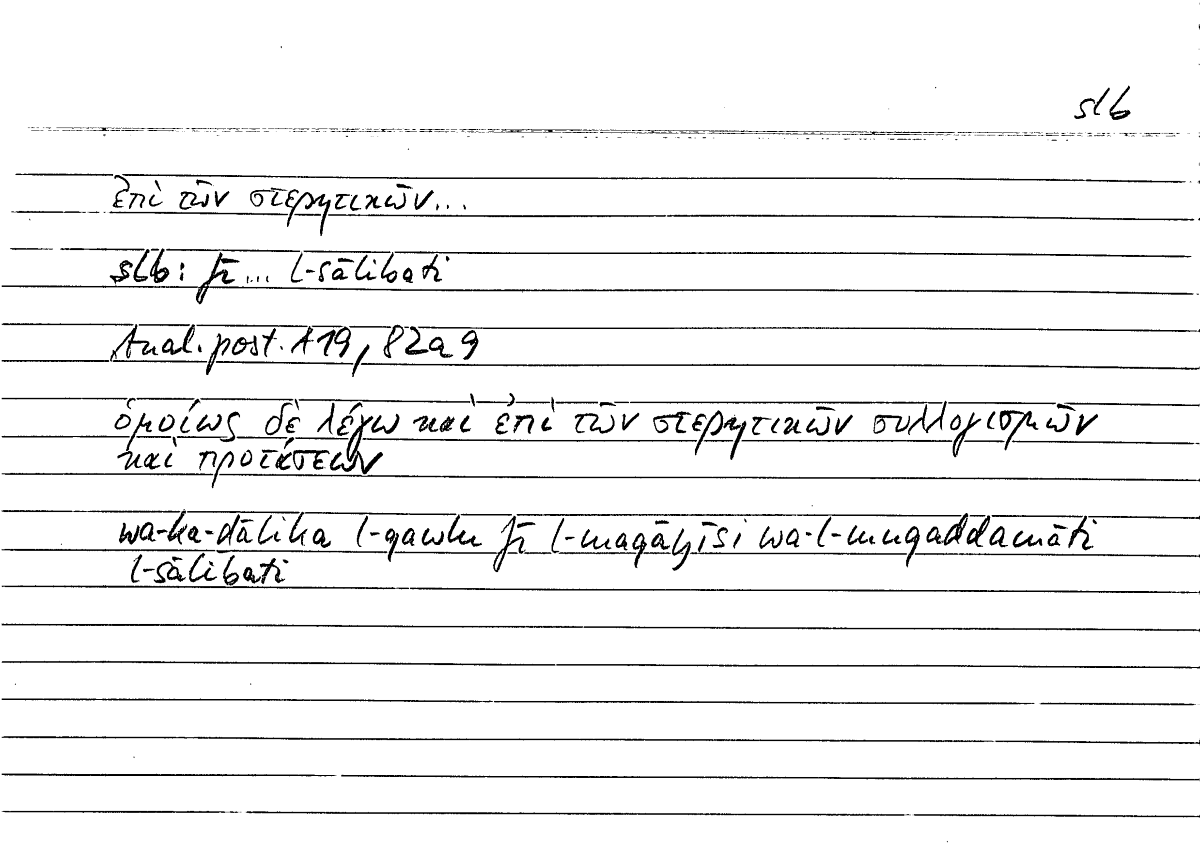 slb
ἐπὶ τῶν στερητικῶν...
slb: fī... l-sālibati
Anal. post. A 19, 82a9
ὁμοίως δὲ λέγω καὶ ἐπὶ τῶν στερητικῶν συλλογισμῶν
καὶ προτάσεων
wa-ka-ḏālika l-qawlu fī l-maqāyīsi wa-l-muqaddamāti
l-sālibati